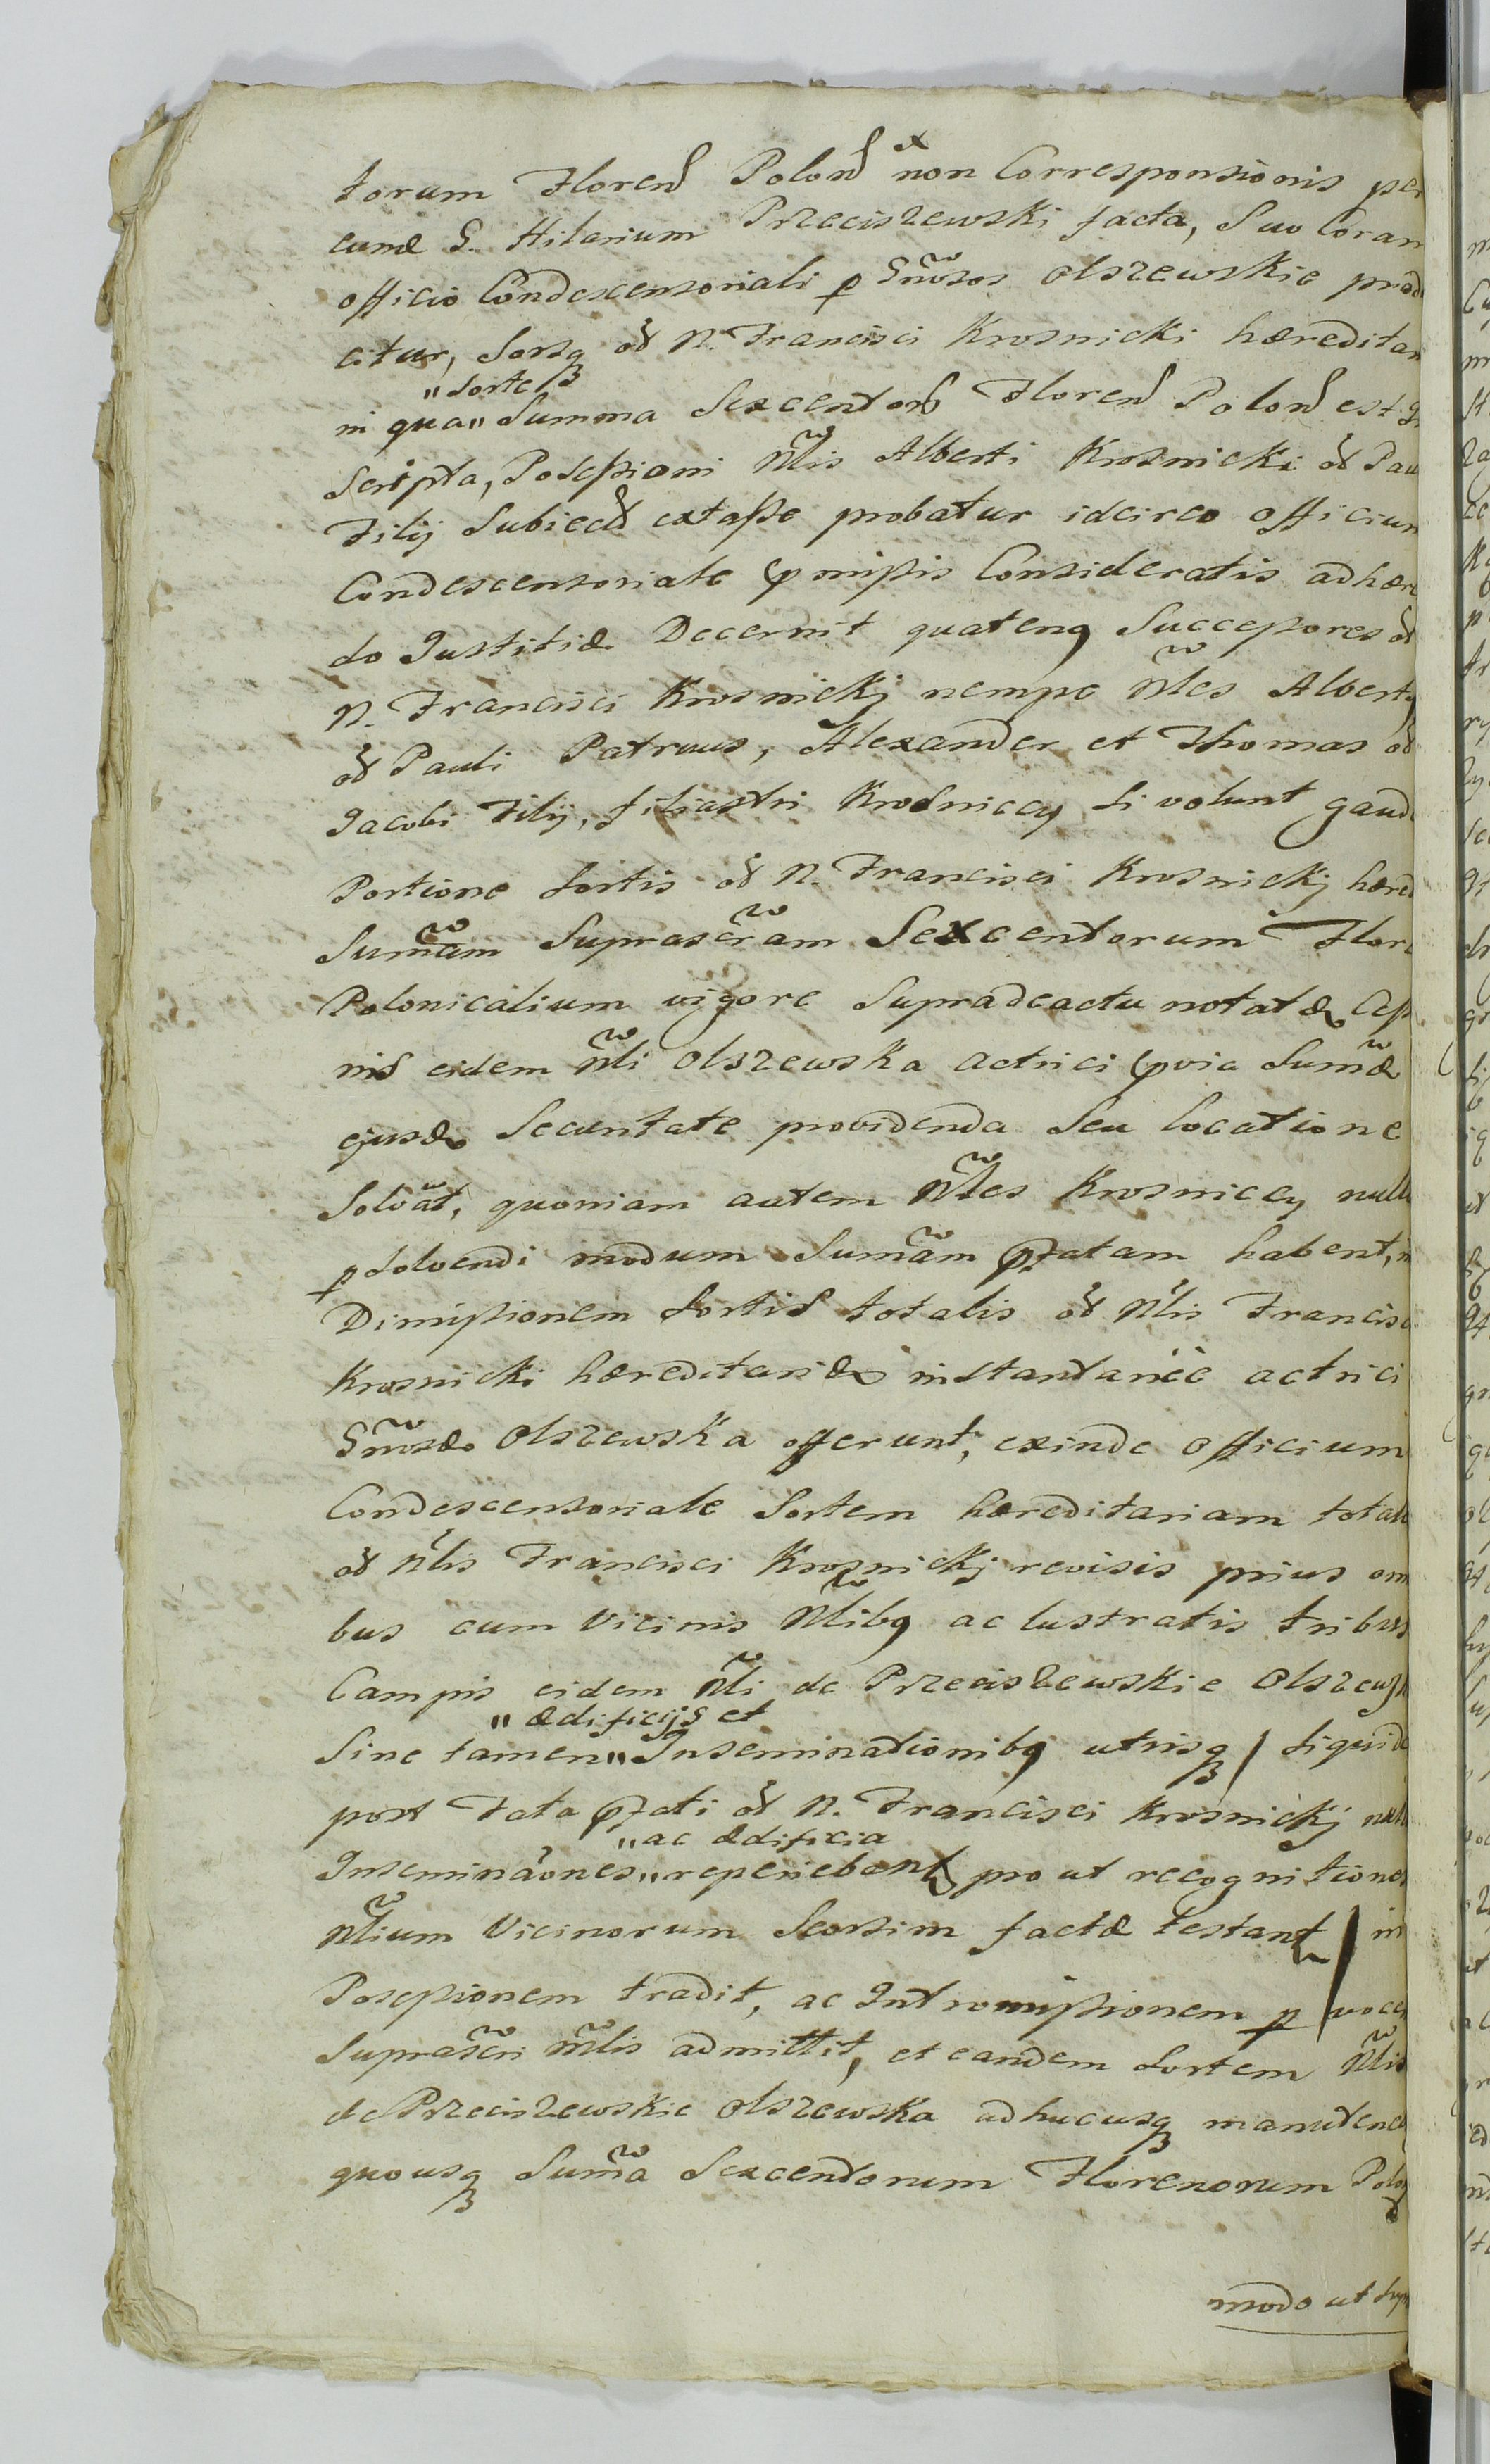 torum Floren Polon ex non Corresponsionis per
eund G. Hilarium Przeciszewski facta, Suo Coram
officio Condescensoriali p Gnosos Olszewskie prod
citur, Sorsq od N. Francisci Krosnicki hæreditar
in qua "Sorte" Summa Sexcentor Floren Polon est
Scripta, Possessioni Nlis Alberti Krosnicki od Pau
Filij Subiect extasse probatur idcirco officium
Condescensoriale pmissis Consideratis adhære
do Justitiæ Decernit quatenq Successores od
N. Francisci Krosnickj nempe Nles Albertq
od Pauli Patruus, Alexander et Thomas od
Jacobi Filij, filiastri Krosniccy si volunt gaude
Portione Sortis od N. Francisci Krosnickj hæred
Sumam Suprascram Sexcentorum Flore
Polonicalium vigore Supradeactu notatæ Cess
nis eidem Nli Olszewska actrici pvia Sumæ
ejusd Securitate providenda Seu locatione
Solvat, quoniam autem Nles Krosniccy null
psolvendi modum Sumam pfatam habent, in
Dimissionem Sortis totalis od Nlis Francisc
Krosnicki hæreditariæ instantanèe actrici
Gnosæ Olszewska offerunt, exinde officium
Condescensoriale Sortem hæreditariam totale
od Nlis Francisci Krosnickj revisis prius om
bus cum Vicinis Nlibq ac lustratis tribus
Campis eidem Nli de Przeciszewskie Olszewsk
Sine tamen "ædificijs et" Inseminationibq utrisq / siquide
post Fata pfati od N. Francisci Krosnickj null
Inseminaones "ac ædificia" reperiebant pro ut recognitiones
Nlium Vicinorum Seorsim factæ testant / in
Possessionem tradit, ac Intromissionem p vocem
Suprascri mlis admittit, et eandem Sortem Nlis
de Przeciszewskie Olszewska adhucusq manutene
quousq Suma Sexcentorum Florenorum Polo
modo ut Sup